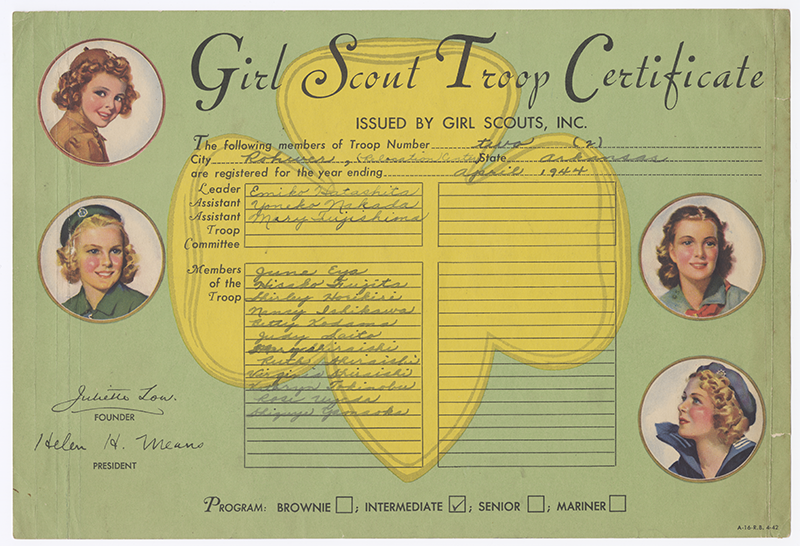 Girl Scout Troop Certificate
ISSUED BY GIRL SCOUTS, INC.
The following members of Troop Number two (2)
City Rohwer, Relocation Center State Arkansas
are registered for the year ending April 1944
Leader Emiko Hatashita
Assistant Yoneko Nakada
Assistant Mary Fujishima
Troop
Committee
Members June Eya
of the Hisako Fujita
Troop Shirley Horikiri
Nancy Ishikawa
Betty Kodama
Judy Saito
Mary Shiraishi
Ruth Shiraishi
Virginia Shiraishi
Tokinobu
Rose
Yamaoka
Juliette Low.
FOUNDER
Helen H. Means
PRESIDENT
PROGRAM: BROWNIE ; INTERMEDIATE ✓; SENIOR ; MARINER
A-16-R.B. 4-42